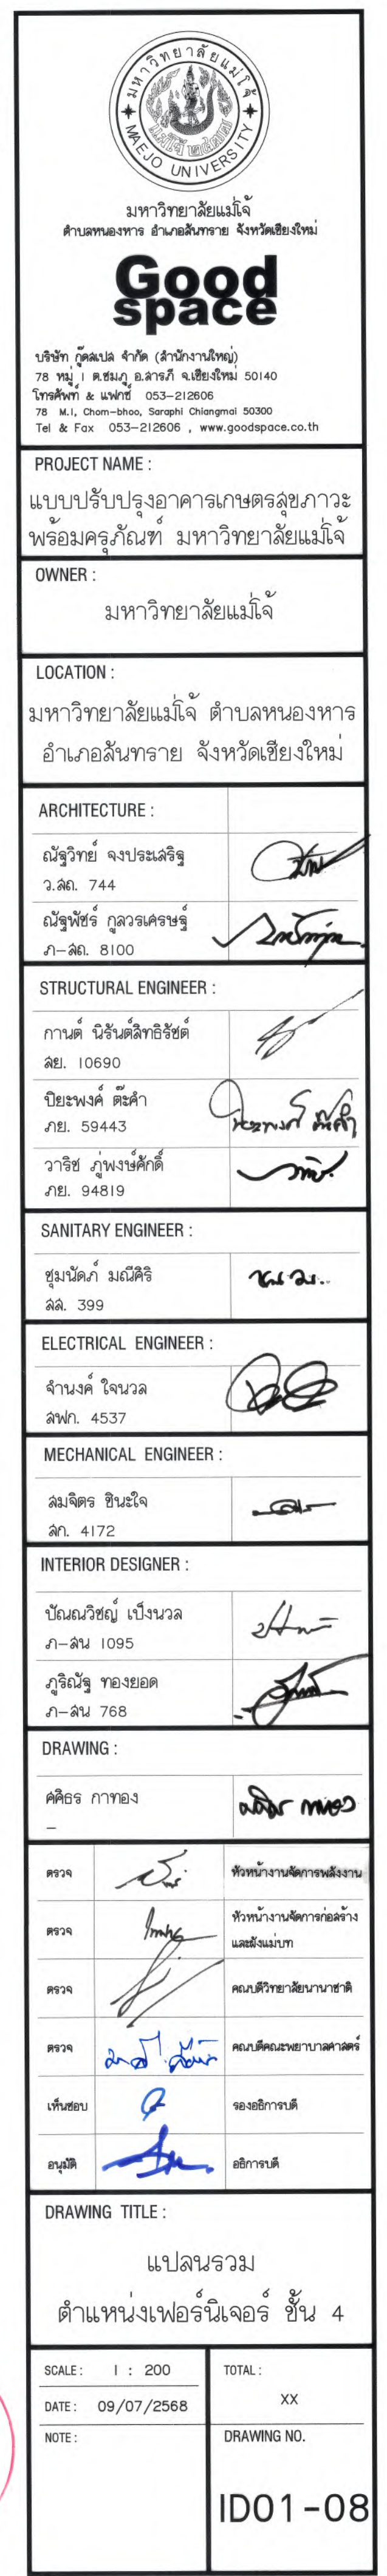 มหาวิทยาลัยแม่โจ้
MAEJO UNIVERSITY
มหาวิทยาลัยแม่โจ้
ตำบลหนองหาร อำเภอสันทราย จังหวัดเชียงใหม่
Good
space
บริษัท กู๊ดสเปล จำกัด (สำนักงานใหญ่)
78 หมู่ 1 ต.ชมภู อ.สารภี จ.เชียงใหม่ 50140
โทรศัพท์ & แฟกซ์ 053-212606
78 M.1, Chom-bhoo, Saraphi Chiangmai 50300
Tel & Fax 053-212606 , www.goodspace.co.th
PROJECT NAME :
แบบปรับปรุงอาคารเกษตรสุขภาวะ
พร้อมครุภัณฑ์ มหาวิทยาลัยแม่โจ้
OWNER :
มหาวิทยาลัยแม่โจ้
LOCATION :
มหาวิทยาลัยแม่โจ้ ตำบลหนองหาร
อำเภอสันทราย จังหวัดเชียงใหม่
ARCHITECTURE :
ณัฐวิทย์ จงประเสริฐ
ว.สถ. 744
ณัฐพัชร์ กูลวรเศรษฐ์
ภ-สถ. 8100
STRUCTURAL ENGINEER :
กานต์ นิรันต์สิทธิรัชต์
สย. 10690
ปิยะพงค์ ต๊ะคำ
ภย. 59443
วาริช ภู่พงษ์ศักดิ์
ภย. 94819
SANITARY ENGINEER :
ชุมนัดภ์ มณีศิริ
สส. 399
ELECTRICAL ENGINEER :
จำนงค์ ใจนวล
สฟก. 4537
MECHANICAL ENGINEER :
สมจิตร ชินะใจ
สก. 4172
INTERIOR DESIGNER :
ปัณณวิชญ์ เป็งนวล
ภ-สน 1095
ภูริณัฐ ทองยอด
ภ-สน 768
DRAWING :
ศศิธร กาทอง
–
ตรวจ หัวหน้างานจัดการพลังงาน
ตรวจ หัวหน้างานจัดการก่อสร้าง
และผังแม่บท
ตรวจ คณบดีวิทยาลัยนานาชาติ
ตรวจ คณบดีคณะพยาบาลศาสตร์
เห็นชอบ รองอธิการบดี
อนุมัติ อธิการบดี
DRAWING TITLE :
แปลนรวม
ตำแหน่งเฟอร์นิเจอร์ ชั้น 4
SCALE : 1 : 200
TOTAL :
DATE : 09/07/2568
XX
NOTE :
DRAWING NO.
ID01-08